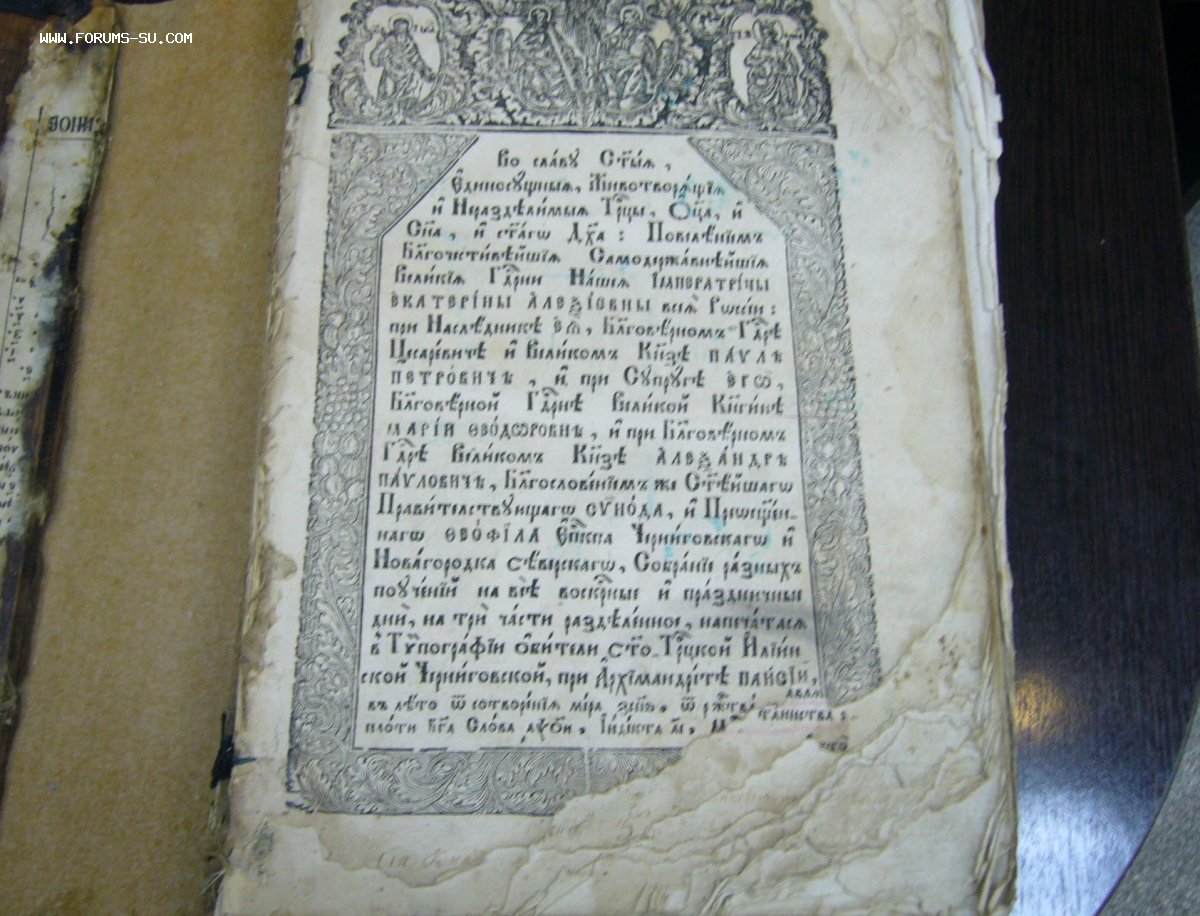 WWW.FORUMS-SU.COM
Во сла́ву Ст҃ы́ѧ,
Е҆диносꙋ́щныѧ, Животворѧ́щїѧ
и҆ Нераздѣли́мыѧ Трⷪ҇цы, Ѻ҆ц҃а̀, и҆
Сн҃а, и҆ ст҃а́гѡ Дх҃а: Повелѣ́нїемъ
Бл҃гочести́вѣйшїѧ Самодержа́внѣйшїѧ
Вели́кїѧ Гдⷭ҇рни На́шеѧ І҆мператрі́цы
Є҆КАТЕРІ́НЫ А҆ЛЕѮІ́ЕВНЫ всеѧ̀ Рѡссі́и:
при Наслѣ́дникѣ Є҆Ѧ̀, Бл҃говѣ́рномъ Гдⷭ҇рѣ
Цесаре́вичѣ и҆ Вели́комъ Кн҃зѣ ПА́ѴЛѢ
ПЕТРО́ВИЧѢ, и҆ при Сꙋпрꙋ́гѣ Є҆ГѠ̀,
Бл҃говѣ́рной Гдⷭ҇рнѣ Вели́кой Кн҃ги́нѣ
МАРІ́И ѲЕО́ДѠРОВНѢ, и҆ при Бл҃говѣ́рномъ
Гдⷭ҇рѣ Вели́комъ Кн҃зѣ А҆ЛЕѮА́НДРѢ
ПА́ѴЛОВИЧѢ, Бл҃гослове́нїемъ же Ст҃ѣ́йшагѡ
Прави́телствꙋющагѡ СѴНО́ДА, и҆ Прео҆сщ҃е́н-
нагѡ ѲЕО́ФІЛА Е҆пⷭ҇кпа Черни́говскагѡ и҆
Нова́городка сѣ́верскагѡ, Собра́нїе ра́зныхъ
поꙋче́нїй на всѣ̀ воскрⷭ҇ные и҆ пра́здничные
днѝ, на трѝ ча́сти раздѣле́нное, напеча́тасѧ
в̾ Тѷпогра́фїи ѻ҆би́тели ст҃о-Трⷪ҇цкой И҆лїи́н
ской Черни́говской, при А҆рхїмандрі́тѣ ПАИ́СІИ,
въ лѣ́то ѿ сотворе́нїѧ мі́ра ѿ ржⷭ҇тва̀
пло́ти Бг҃а Сло́ва І҆ндікта